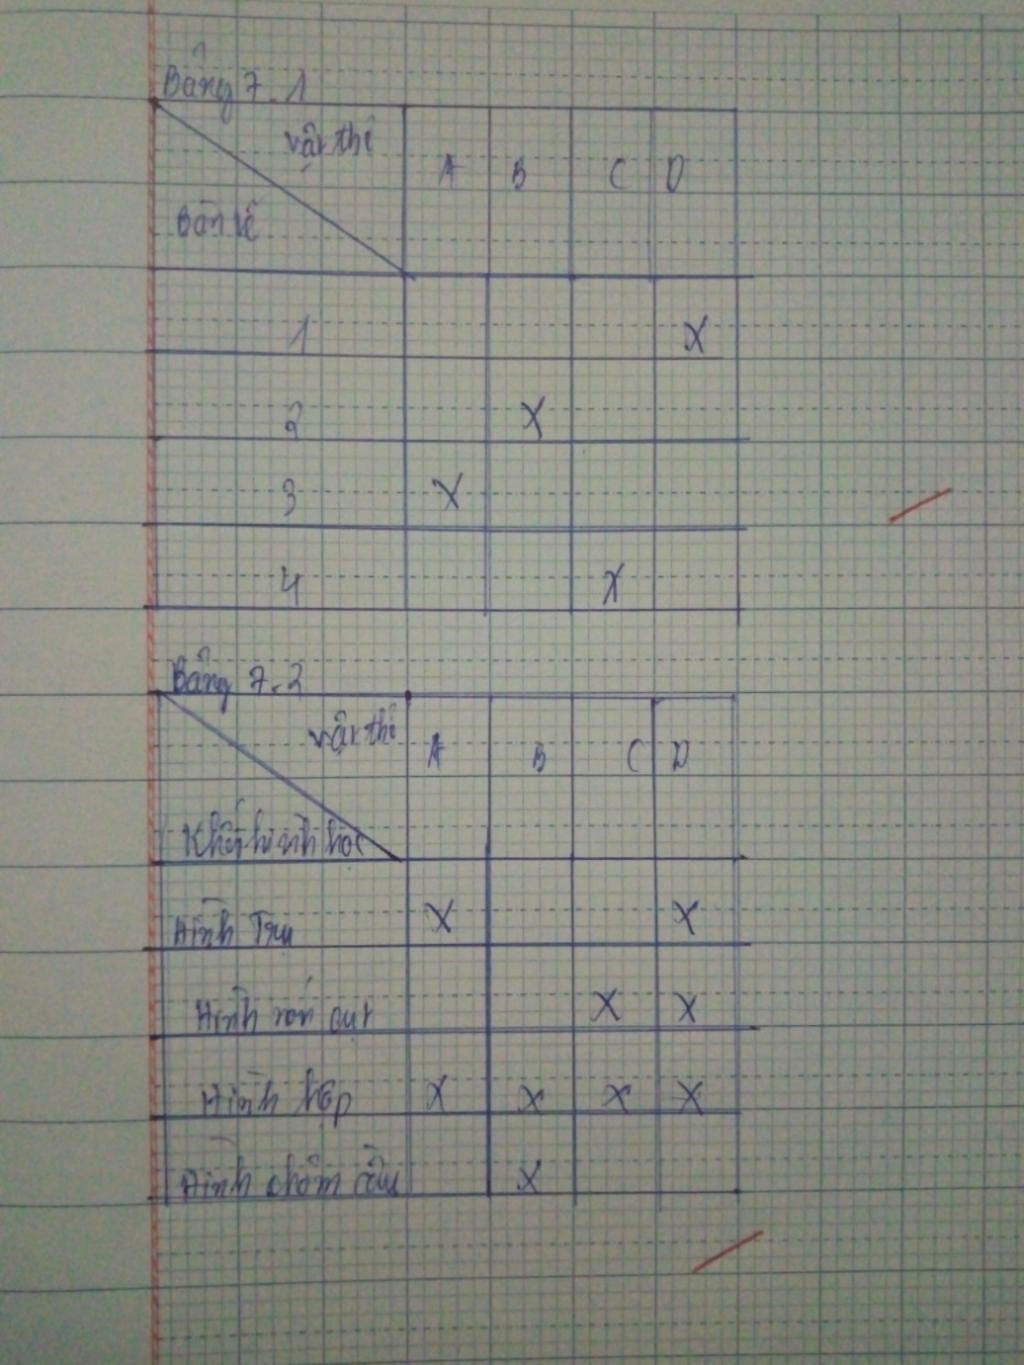 Bảng 7.1
vật thể
A B C D
Bản vẽ
1 X
2 X
3 X
4 X
Bảng 7.2
vật thể
A B C D
Khối hình học
Hình Trụ X X
Hình nón cụt X X
Hình hộp X X X X
Hình chỏm cầu X